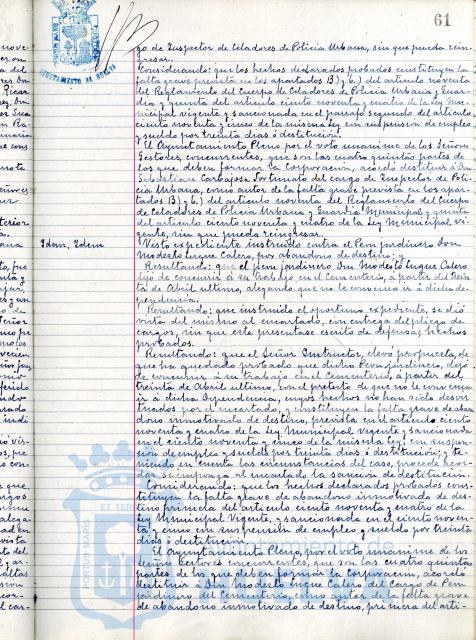 61
AYUNTAMIENTO
go de Inspector de Celadores de Policía Urbana, sin que pueda rein-
gresar.
Considerando: que los hechos declarados probados constituyen la
falta grave prevista en los apartados B) y 6.) del artículo noventa
del Reglamento del Cuerpo de Celadores de Policía Urbana y Guar-
dia y quinta del artículo ciento noventa y cuatro de la Ley Mu-
nicipal, vigente y sancionada en el párrafo segundo del artículo
ciento noventa y cinco de la misma Ley con suspensión de empleo
y sueldo por treinta dias ó destitución.
El Ayuntamiento Pleno por el voto unanime de los Señores
Gestores, concurrentes, que son las cuatro quintas partes de
los que deben formar la Corporación, acordó destituir á Don
Sebastian Carbajosa Fortunato del cargo de Inspector de Poli-
cía Urbana, como autor de la falta grave prevista en los apar-
tados B) y 6.) del artículo noventa del Reglamento del Cuerpo
de Celadores de Policía Urbana y Guardia Municipal y quinta
del artículo ciento noventa y cuatro de la Ley Municipal, vi-
gente, sin que pueda reingresar.
Idem, Idem
Visto expediente instruido contra el Peon jardinero Don
Modesto Luque Calero, por abandono de destino; y
Resultando: que el peon jardinero Don Modesto Luque Calero
dejó de concurir á su trabajo en el Cementerio, á partir del trein-
ta de Abril ultimo, alegando que no le convenia ir á dicha de-
pendencia.
Resultando: que instruido el oportuno expediente, se dió
vista del mismo al encartado, con entrega del pliego de
cargos, sin que este presentase escrito de defensa; hechos
probados.
Resultando: que el Señor Instructor, elevó propuesta, de
que ha quedado probado que dicho Peon jardinero, dejó
de concurrir á su trabajo en el Cementerio á partir del
treinta de Abril ultimo, con el pretexto de que no le convenia
ir á dicha Dependencia, cuyos hechos no han sido desvir-
tuados por el encartado, y constituyen la falta grave de aban-
dono inmotivado de destino, prevista en el artículo ciento
noventa y cuatro de la Ley Municipal vigente y sancionada
en el ciento noventa y cinco de la misma Ley, con suspen-
sión de empleo y sueldo por treinta dias ó destitución; y te-
niendo en cuenta las circunstancias del caso, procede acor-
dar se imponga al encartado la sanción de destitución.
Considerando: que los hechos declarados probados cons-
tituyen la falta grave de abandono inmotivado de des-
tino primera del artículo ciento noventa y cuatro de la
Ley Municipal Vigente, y sancionada en el ciento noven-
ta y cinco con suspensión de empleo y sueldo por treinta
dias ó destitución.
El Ayuntamiento Pleno, por el voto unanime de los
Señores Gestores concurrentes, que son las cuatro quintas
partes de los que deben formar la Corporación, acordó
destituir á Don Modesto Luque Calero del Cargo de Peon
jardinero del Cementerio, como autor de la falta grave
de abandono inmotivado de destino, primera del arti-